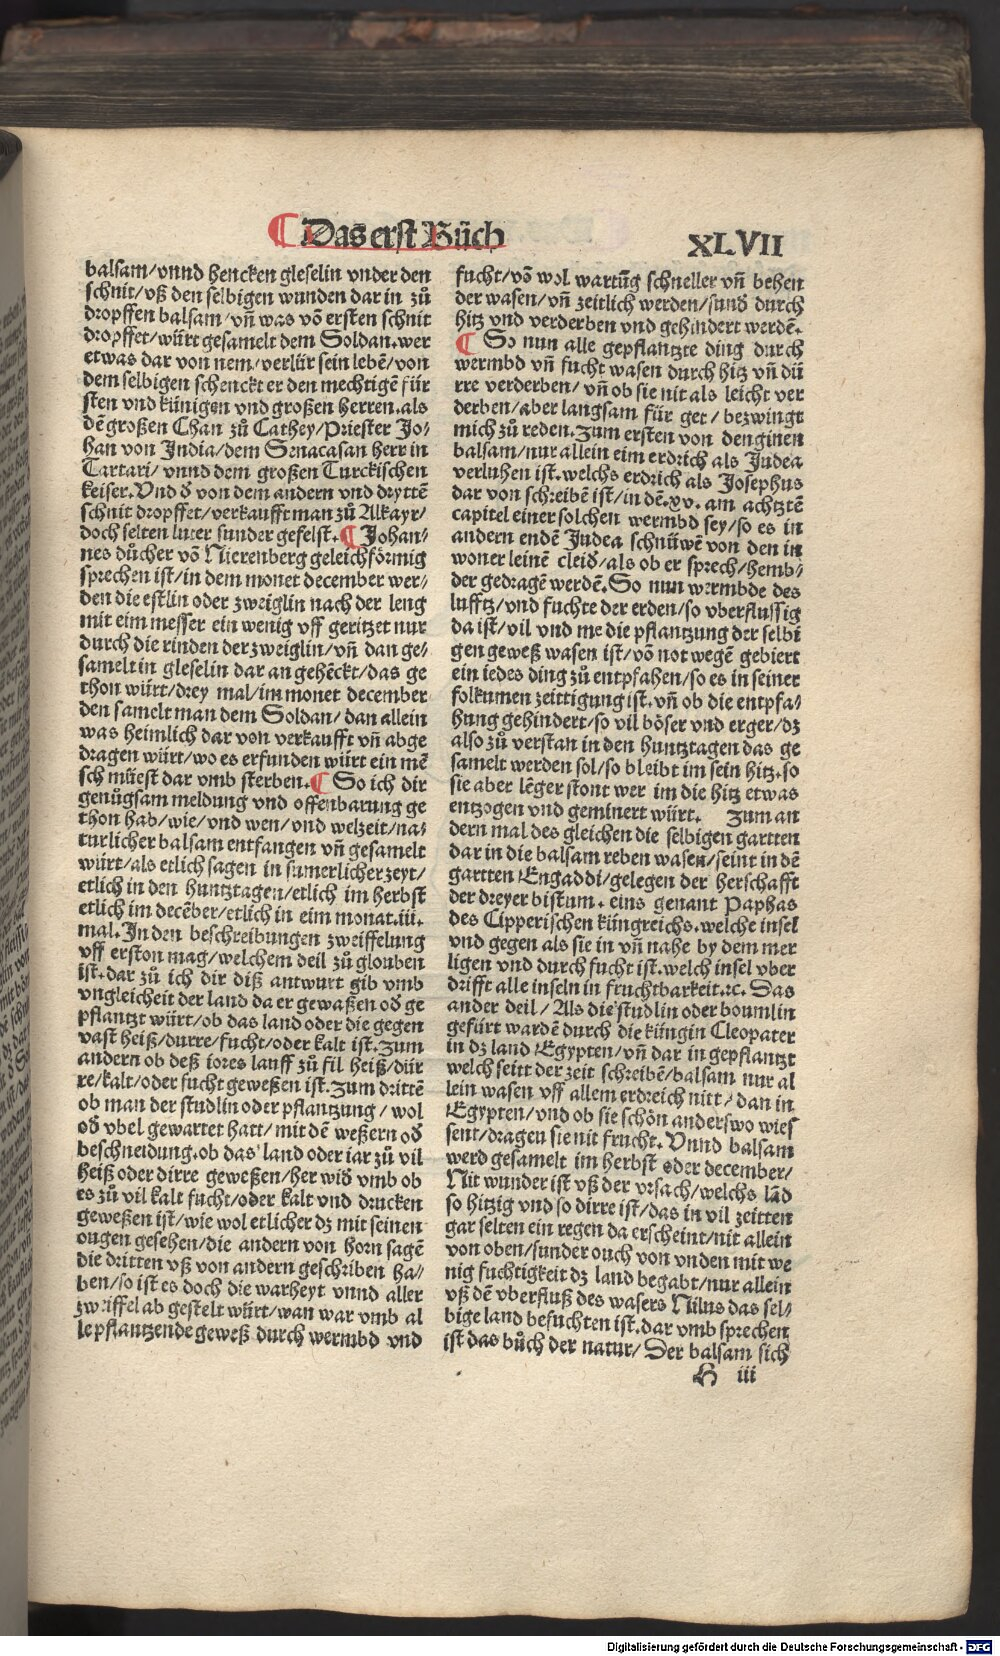 ¶ Das erst Bůch
XLVII
balsam/vnnd hencken gleselin vnder den
schnit/vß den selbigen wunden dar in zů
dropffen balsam/vñ was võ ersten schnit
dropffet/würt gesamelt dem Soldan.wer
etwas dar von nem/verlür sein lebẽ/von
dem selbigen schenckt er den mechtigẽ für
sten vnd künigen vnd großen herren.als
dẽ großen Chan zů Cathey/Priester Jo/
han von India/dem Senacasan herr in
Tartari/ vnnd dem großen Turckischen
keiser.Vnd d̕ von dem andern vnd dryttẽ
schnit dropffet/verkaufft man zů Alkayr/
doch selten luter sunder gefelst.¶ Johan/
nes důcher võ Nierenberg geleichförmig
sprechen ist/in dem monet december wer/
den die estlin oder zweiglin nach der leng
mit eim messer ein wenig vff geritzet nur
durch die rinden der zweiglin/vñ dan ge/
samelt in gleselin dar an gehẽckt/das ge
thon würt/drey mal/im monet december
den samelt man dem Soldan/dan allein
was heimlich dar von verkaufft vñ abge
dragen würt/wo es erfunden würt ein mẽ
sch müest dar vmb sterben.¶ So ich dir
genůgsam meldung vnd offenbarung ge
thon hab/wie/vnd wen/vnd welzeit/na/
turlicher balsam entfangen vñ gesamelt
würt/als etlich sagen in sumerlicher zeyt/
etlich in den huntztagen/etlich im herbst
etlich im decẽber/etlich in eim monat.iii.
mal.In den beschreibungen zweiffelung
vff erston mag/welchem deil zů glouben
ist.dar zů ich dir diß antwurt gib vmb
vngleicheit der land da er gewaßen od̕ ge
pflantzt würt/ob das land oder die gegen
vast heiß/durre/fucht/oder kalt ist.Zum
andern ob deß iores lauff zů fil heiß/dür
re/kalt/oder fucht geweßen ist.Zum drittẽ
ob man der studlin oder pflantzung/wol
od̕ vbel gewartet hatt/mit dẽ weßern od̕
beschneidung.ob das land oder iar zů vil
heiß oder dirre geweßen/her wid̕ vmb ob
es zů vil kalt fucht/oder kalt vnd drucken
geweßen ist/wie wol etlicher dz mit seinen
ougen gesehen/die andern von horn sagẽ
die dritten vß von andern geschriben ha/
ben/so ist es doch die warheyt vnnd aller
zweiffel ab gestelt würt/wan war vmb al
le pflantzende geweß durch wermbd vnd
fucht/võ wol wartũg schneller vñ behen
der wasen/vñ zeitlich werden/sund̕ durch
hitz vnd verderben vnd gehindert werdẽ.
¶ So nun alle gepflantzte ding durch
wermbd vñ fucht wasen durch hitz vñ dü
rre verderben/vñ ob sie nit als leicht ver
derben/aber langsam für get/bezwingt
mich zů reden.Zum ersten von den ginen
balsam/nur allein eim erdrich als Judea
verluhen ist.welchs erdrich als Josephus
dar von schreibẽ ist/in dẽ.xv.am achtztẽ
capitel einer solchen wermbd sey/so es in
andern endẽ Judea schnüwẽ von den in
woner leinẽ cleid̕/als ob er sprech/hemb/
der gedragẽ werdẽ.So nun wermbde des
lufftz/vnd fuchte der erden/so vberflussig
da ist/vil vnd me die pflantzung der selbi
gen geweß wasen ist/võ not wegẽ gebiert
ein iedes ding zů entpfahen/so es in seiner
folkumen zeittigung ist.vñ ob die entpfa/
hung gehindert/so vil böser vnd erger/dz
also zů verstan in den huntztagen das ge
samelt werden sol/so bleibt im sein hitz.so
sie aber lẽger stont wer im die hitz etwas
entzogen vnd geminert würt. Zum an
dern mal des gleichen die selbigen gartten
dar in die balsam reben wasen/seint in dẽ
gartten Engaddi/gelegen der herschafft
der dreyer bistum.eins genant Paphas
des Cipperischen küngreichs.welche insel
vnd gegen als sie in vñ nahe by dem mer
ligen vnd durch fucht ist.welch insel vber
drifft alle inseln in fruchtbarkeit.⁊c. Das
ander deil/Als die studlin oder boumlin
gefürt wardẽ durch die küngin Cleopater
in dz land Egypten/vñ dar in gepflantzt
welch seitt der zeit schreibẽ/balsam nur al
lein wasen vff allem erdreich nitt/dan in
Egypten/vnd ob sie schön anderswo wies
sent/dragen sie nit frucht.Vnnd balsam
werd gesamelt im herbst oder december/
Nit wunder ist vß der vrsach/welchs lãd
so hitzig vnd so dirre ist/das in vil zeitten
gar selten ein regen da erscheint/nit allein
von oben/sunder ouch von vnden mit we
nig fuchtigkeit dz land begabt/nur allein
vß dẽ vberfluß des wasers Nilus das sel/
bige land befuchten ist.dar vmb sprechen
ist das bůch der natur/Der balsam sich
H iii
Digitalisierung gefördert durch die Deutsche Forschungsgemeinschaft - DFG